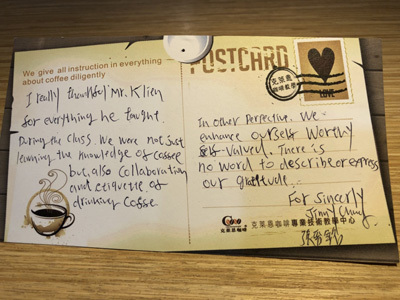 We give all instruction in everything
about coffee diligently
I really thankful Mr. Klien
for everything he taught.
During the class. We were not just
learning the knowledge of coffee
but also collaboration
and etiquette of
drinking coffee
POSTCARD
克萊恩
咖啡教學
LOVE
In other Perfective. We
enhance ourself worthy
Valued. There is
no word to describe or express
our gratitude.
For sincerly
Jimmy
克萊恩咖啡
克萊恩咖啡專業技術教學中心